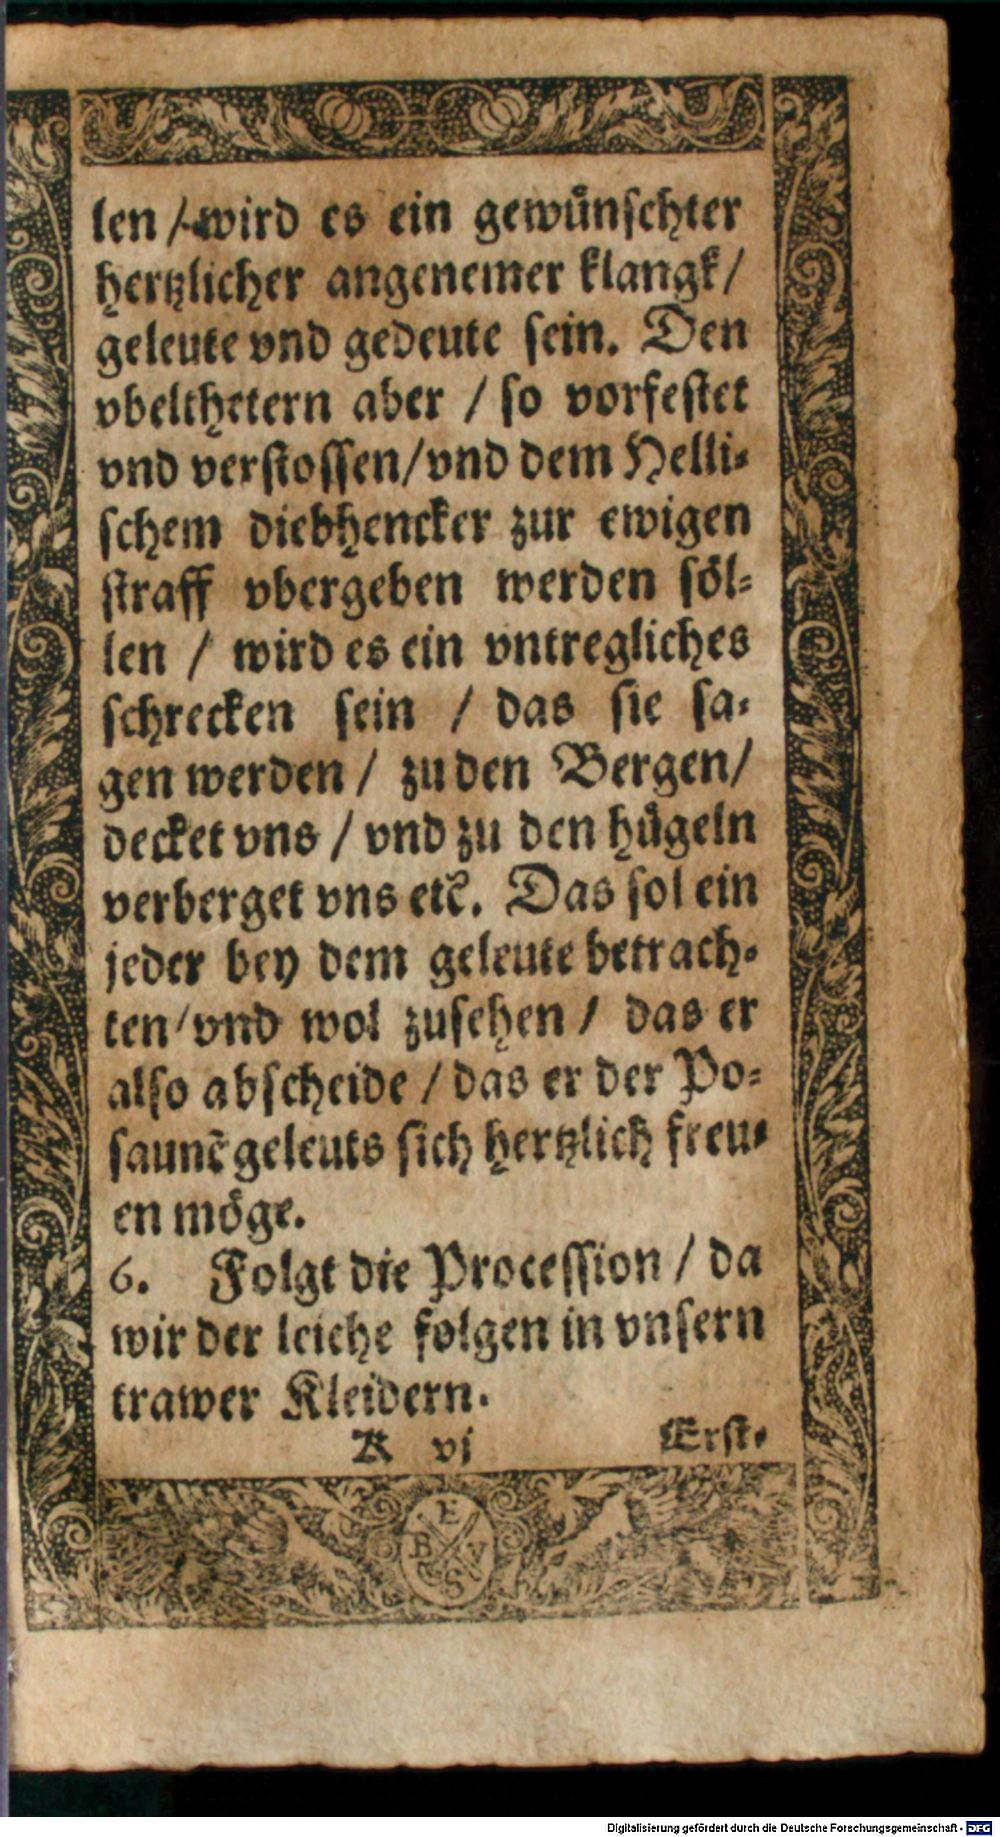 len / wird es ein gewuͤnschter
hertzlicher angenemer klangk /
geleute vnd gedeute sein. Den
vbelthetern aber / so vorfestet
vnd verstossen / vnd dem Helli-
schem diebhencker zur ewigen
straff vbergeben werden soͤl-
len / wird es ein vntregliches
schrecken sein / das sie sa-
gen werden / zu den Bergen /
decket vns / vnd zu den huͤgeln
verberget vns etc̃. Das sol ein
jeder bey dem geleute betrach-
ten / vnd wol zusehen / das er
also abscheide / das er der Po-
saunẽ geleuts sich hertzlich freu-
en moͤge.
6. Folgt die Procession / da
wir der leiche folgen in vnsern
trawer Kleidern.
K vj Erst-
E
B V
S
Digitalisierung gefördert durch die Deutsche Forschungsgemeinschaft - DFG